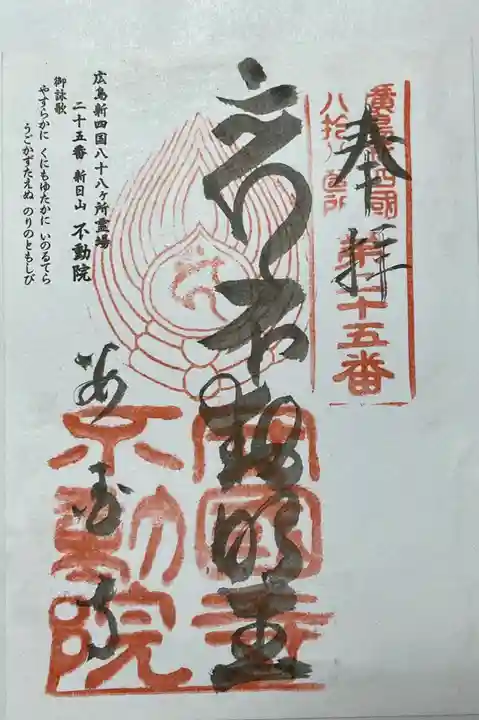 廣島新四國
八拾八箇所
第二十五番
奉拝
不動明王
安國寺
不動院
安国寺
広島新四国八十八ヶ所霊場
二十五番 新日山 不動院
御詠歌
やすらかに くにもゆたかに いのるてら
うごかずたえぬ のりのともしび